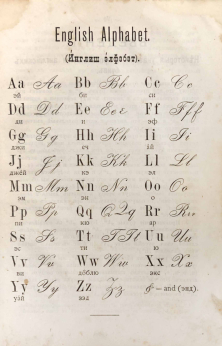 English Alphabet.
(Ингліш алфабэт).
Aa Aa Bb Bb Cc Cc
эй би си
Dd Dd Ee Eee Ff Fff
ди и эф
Gg Gg Hh Hh Ii Ii
джи эч ай
Jj Jj Kk Kkk Ll Ll
джэй кэ эл
Mm Mm Nn Nn Oo Oo
эм эн о
Pp Pp Qq QQq Rr Rrr
пи кю ар
Ss Ss Tt TTt Uu Uu
эс ти ю
Vv Vv Ww Ww Xx Xx
ви экс
Yy Yy Zz Zz & — and (энд).
уай зэд